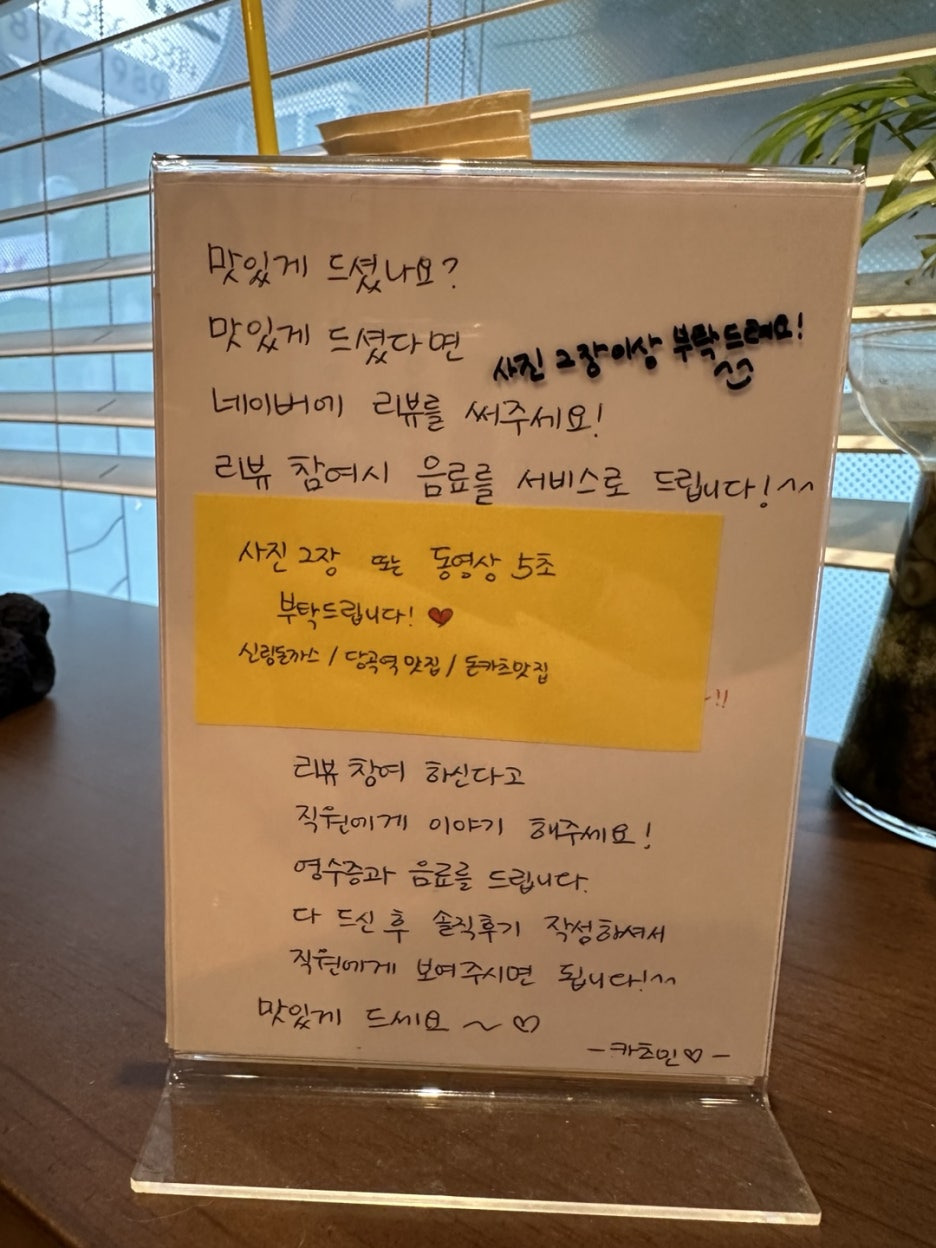 맛있게 드셨나요?
맛있게 드셨다면
사진 2장이상 부탁드려요!
네이버에 리뷰를 써주세요!
리뷰 참여시 음료를 서비스로 드립니다!^^
사진 2장 또는 동영상 5초
부탁드립니다! ♥
신림돈까스 / 당곡역 맛집 / 돈카츠맛집
~!!
리뷰 참여 하신다고
직원에게 이야기 해주세요!
영수증과 음료를 드립니다.
다 드신 후 솔직후기 작성하셔서
직원에게 보여주시면 됩니다!^^
맛있게 드세요 ~ ♡
- 카츠민♡ -